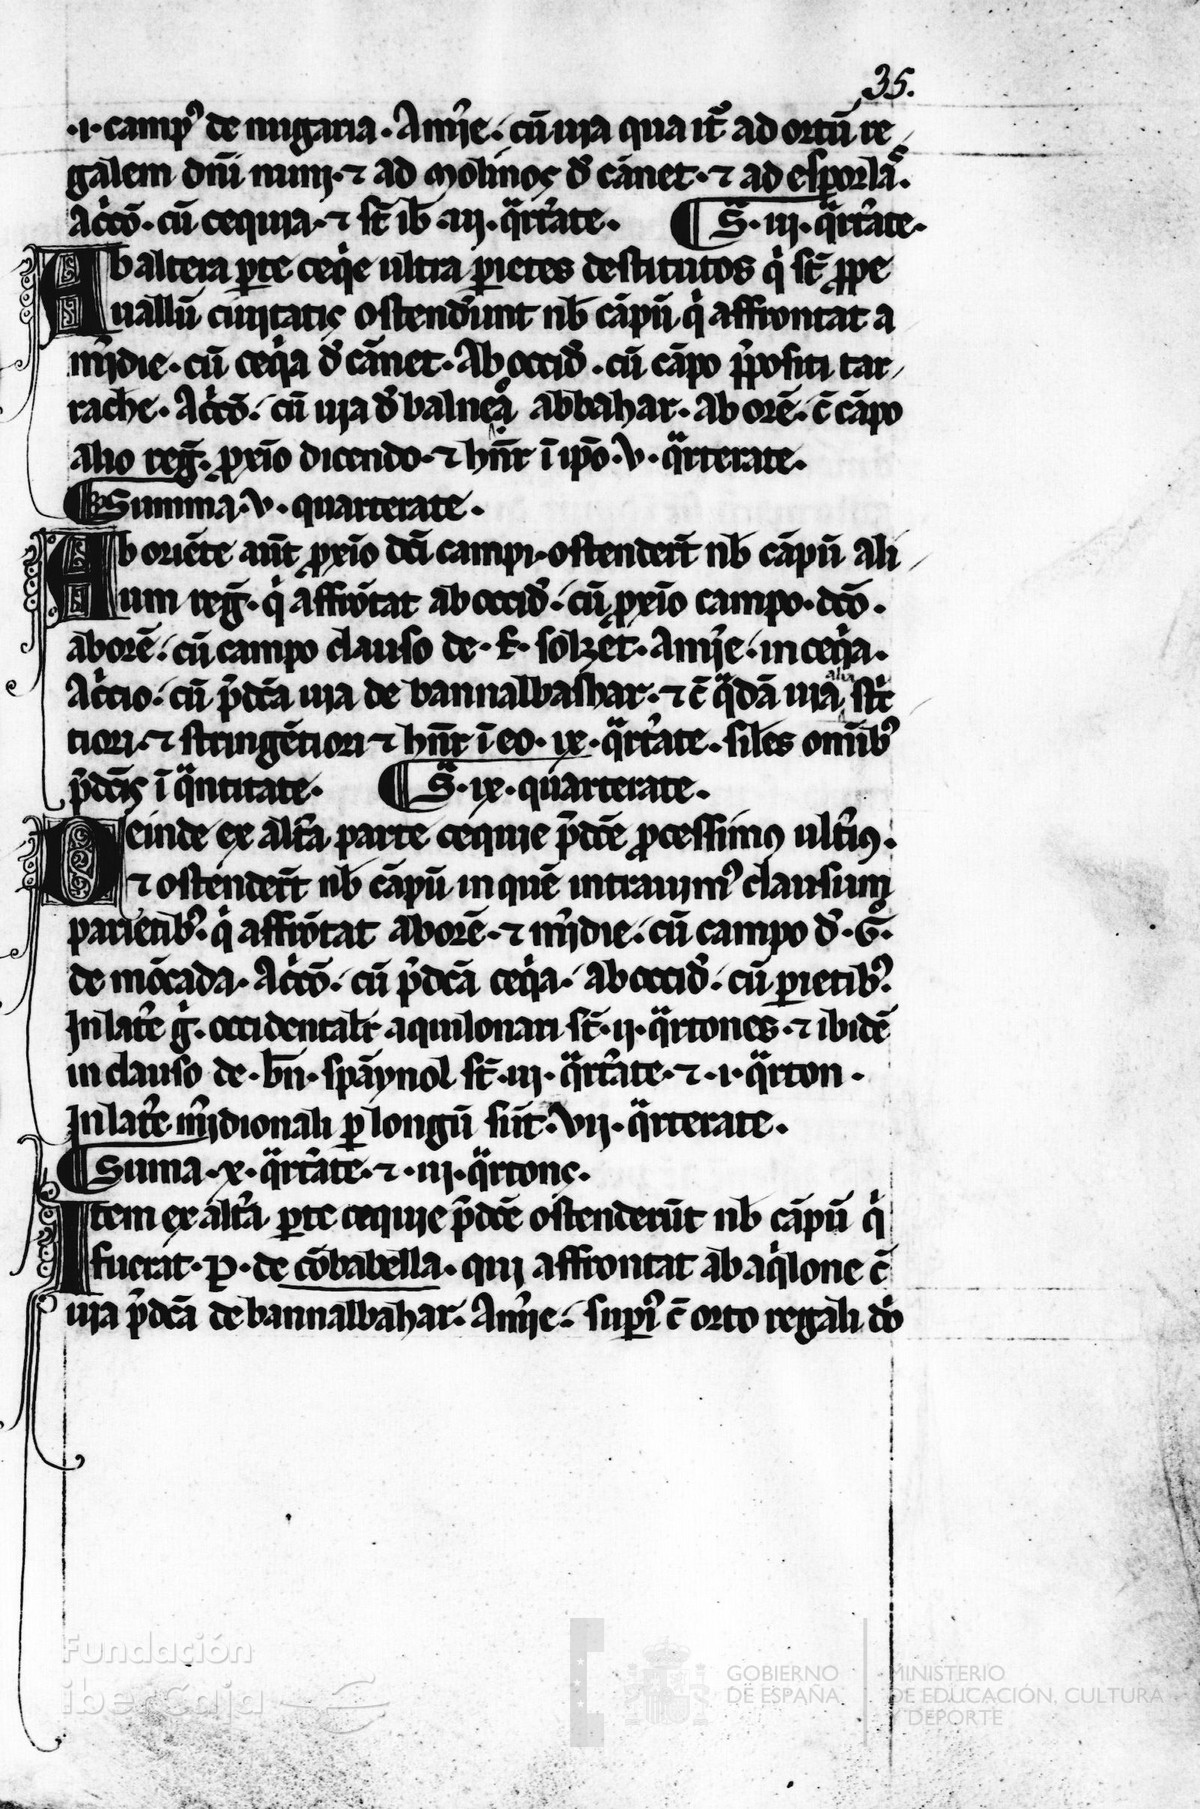 35.
·i· campꝰ de nugaria. Amịe. cū uia qua it᷑ ad ortū re
galem dn̄i nunij. ⁊ ad molinos đ cānet. ⁊ ad esporlaˢ.
Acc̄o. cū cequia. ⁊ st̄ ib̄ .iij. qͣrt̓ate. ¶ Sͣ. iij. qͣrt̓ate.
Ab altera ꝑte ceq̇e ultra ꝑietes destitutos q̇ st̄ ꝓpe
uallū ciuitatis ostend̓unt nb̄ cāpū q̇ affrontat a
m̓idie. cū ceq̇a đ cānet. Ab occiđ. cū cāpo p̄positi tar
rache. Acc̓o. cū uia đ balneaˢ abbahar. Ab orē. c̄ cāpo
alio reḡ. ꝓxīo dicendo. ⁊ hn̄t᷑ ī ip̄o. v. qͣrterate.
¶ Summa. v. quarterate.
Ab oriēte aūt ꝓxīo dc̄i campi. ostender̄t nb̄ cāpū ali
um reḡ. q̇ affrōtat ab occiđ. cū ꝓxīo campo. dc̄o.
ab orē. cū campo clauso de. f̄. solzet. Am̓ie. in ceq̇a.
Acc̓io. cū p̄dc̄a uia de bannalbashar. ⁊ c̄ qͣdā uia alia st̓c
tiori. ⁊ stringētiori ⁊ hn̄t᷑ ī eo. ix. qͣrt̓ate. siles om̄ibꝰ
p̄dc̄is ī qͣntitate. ¶ Sͣ. ix. quarterate.
Deinde ex alt̓a parte cequie p̄dc̄e ꝓcessimus ult̓ius.
⁊ ostender̄t nb̄ cāpū in quē intrauimꝰ clausum
parietibꝰ. q̇ affrōtat ab orē. ⁊ m̓idie. cū campo đ. G̅.
de mōcada. Acc̓o. cū p̄dc̄a ceq̇a. ab occiđ. cū ꝑietibꝰ.
In lat̓e g̊. occidentali ⁊ aquilonari st̄. ii. qͣrtones. ⁊ ibidē
in clauso de. bn̄. spāynol st̄. iij. qͣrt̓ate. ⁊. i. qͣrton.
In lat̓e m̓idionali ꝑ longū sūt. vii. qͣrterate.
¶ Suma. x. qͣrt̓ate. ⁊. iii. qͣrtonꝭ.
Item ex alt̓a ꝑte cequie p̄dc̄e ostenderūt nb̄ cāpū q̇
fuerat. P. de cōbabella. qui affrontat ab aq̇lone c̄
uia p̄dc̄a de bannalbahar. Am̓ie. suꝑi̓ c̄ orto regali do
Fundación
iberCaja
GOBIERNO
DE ESPAÑA
MINISTERIO
DE EDUCACIÓN, CULTURA
Y DEPORTE